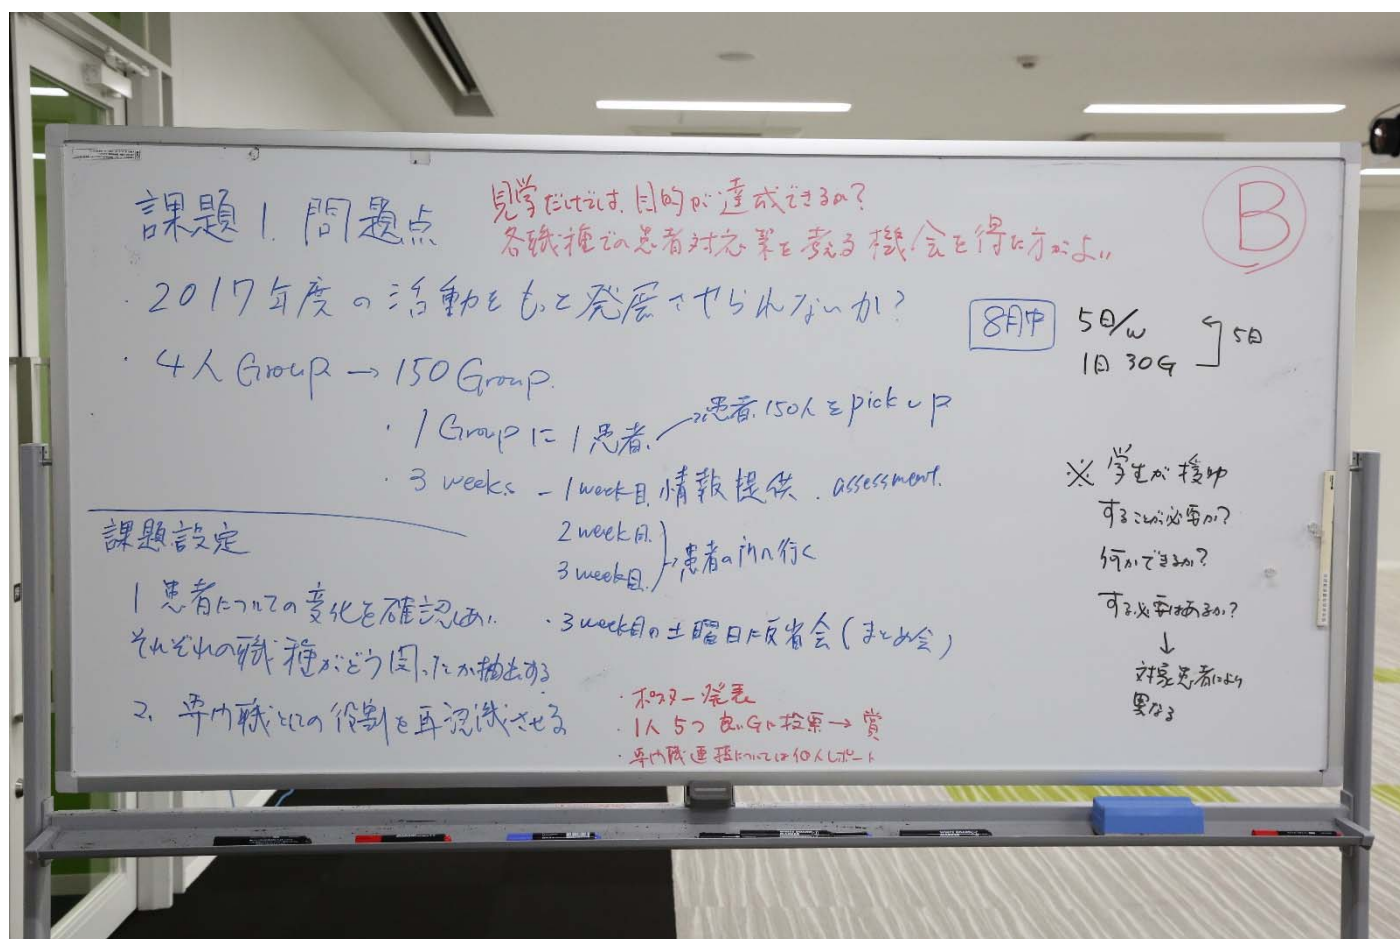 課題1. 問題点
見学だけでは、目的が達成できるか?
各職種での患者対応策を考える機会を得た方がよい
B
・2017年度の活動をもっと発展させられないか?
8月中
5日/w
1日 30G
5日
・4人Group → 150 Group.
・1 Groupに1患者. → 患者150人をpick up
・3 weeks. - 1week目. 情報提供. assessment.
2week目.
3week目.
→患者の所へ行く
・3week目の土曜日に反省会(まとめ会)
課題設定
1 患者についての変化を確認しあい
それぞれの職種がどう関ったか抽出する
2. 専門職としての役割を再認識させる
・ポスター発表
・1人5つ 良いGに投票→賞
・専門職連携については個人レポート
※ 学生が援助
することが必要か?
何ができるか?
する必要はあるか?
↓
対象患者により
異なる